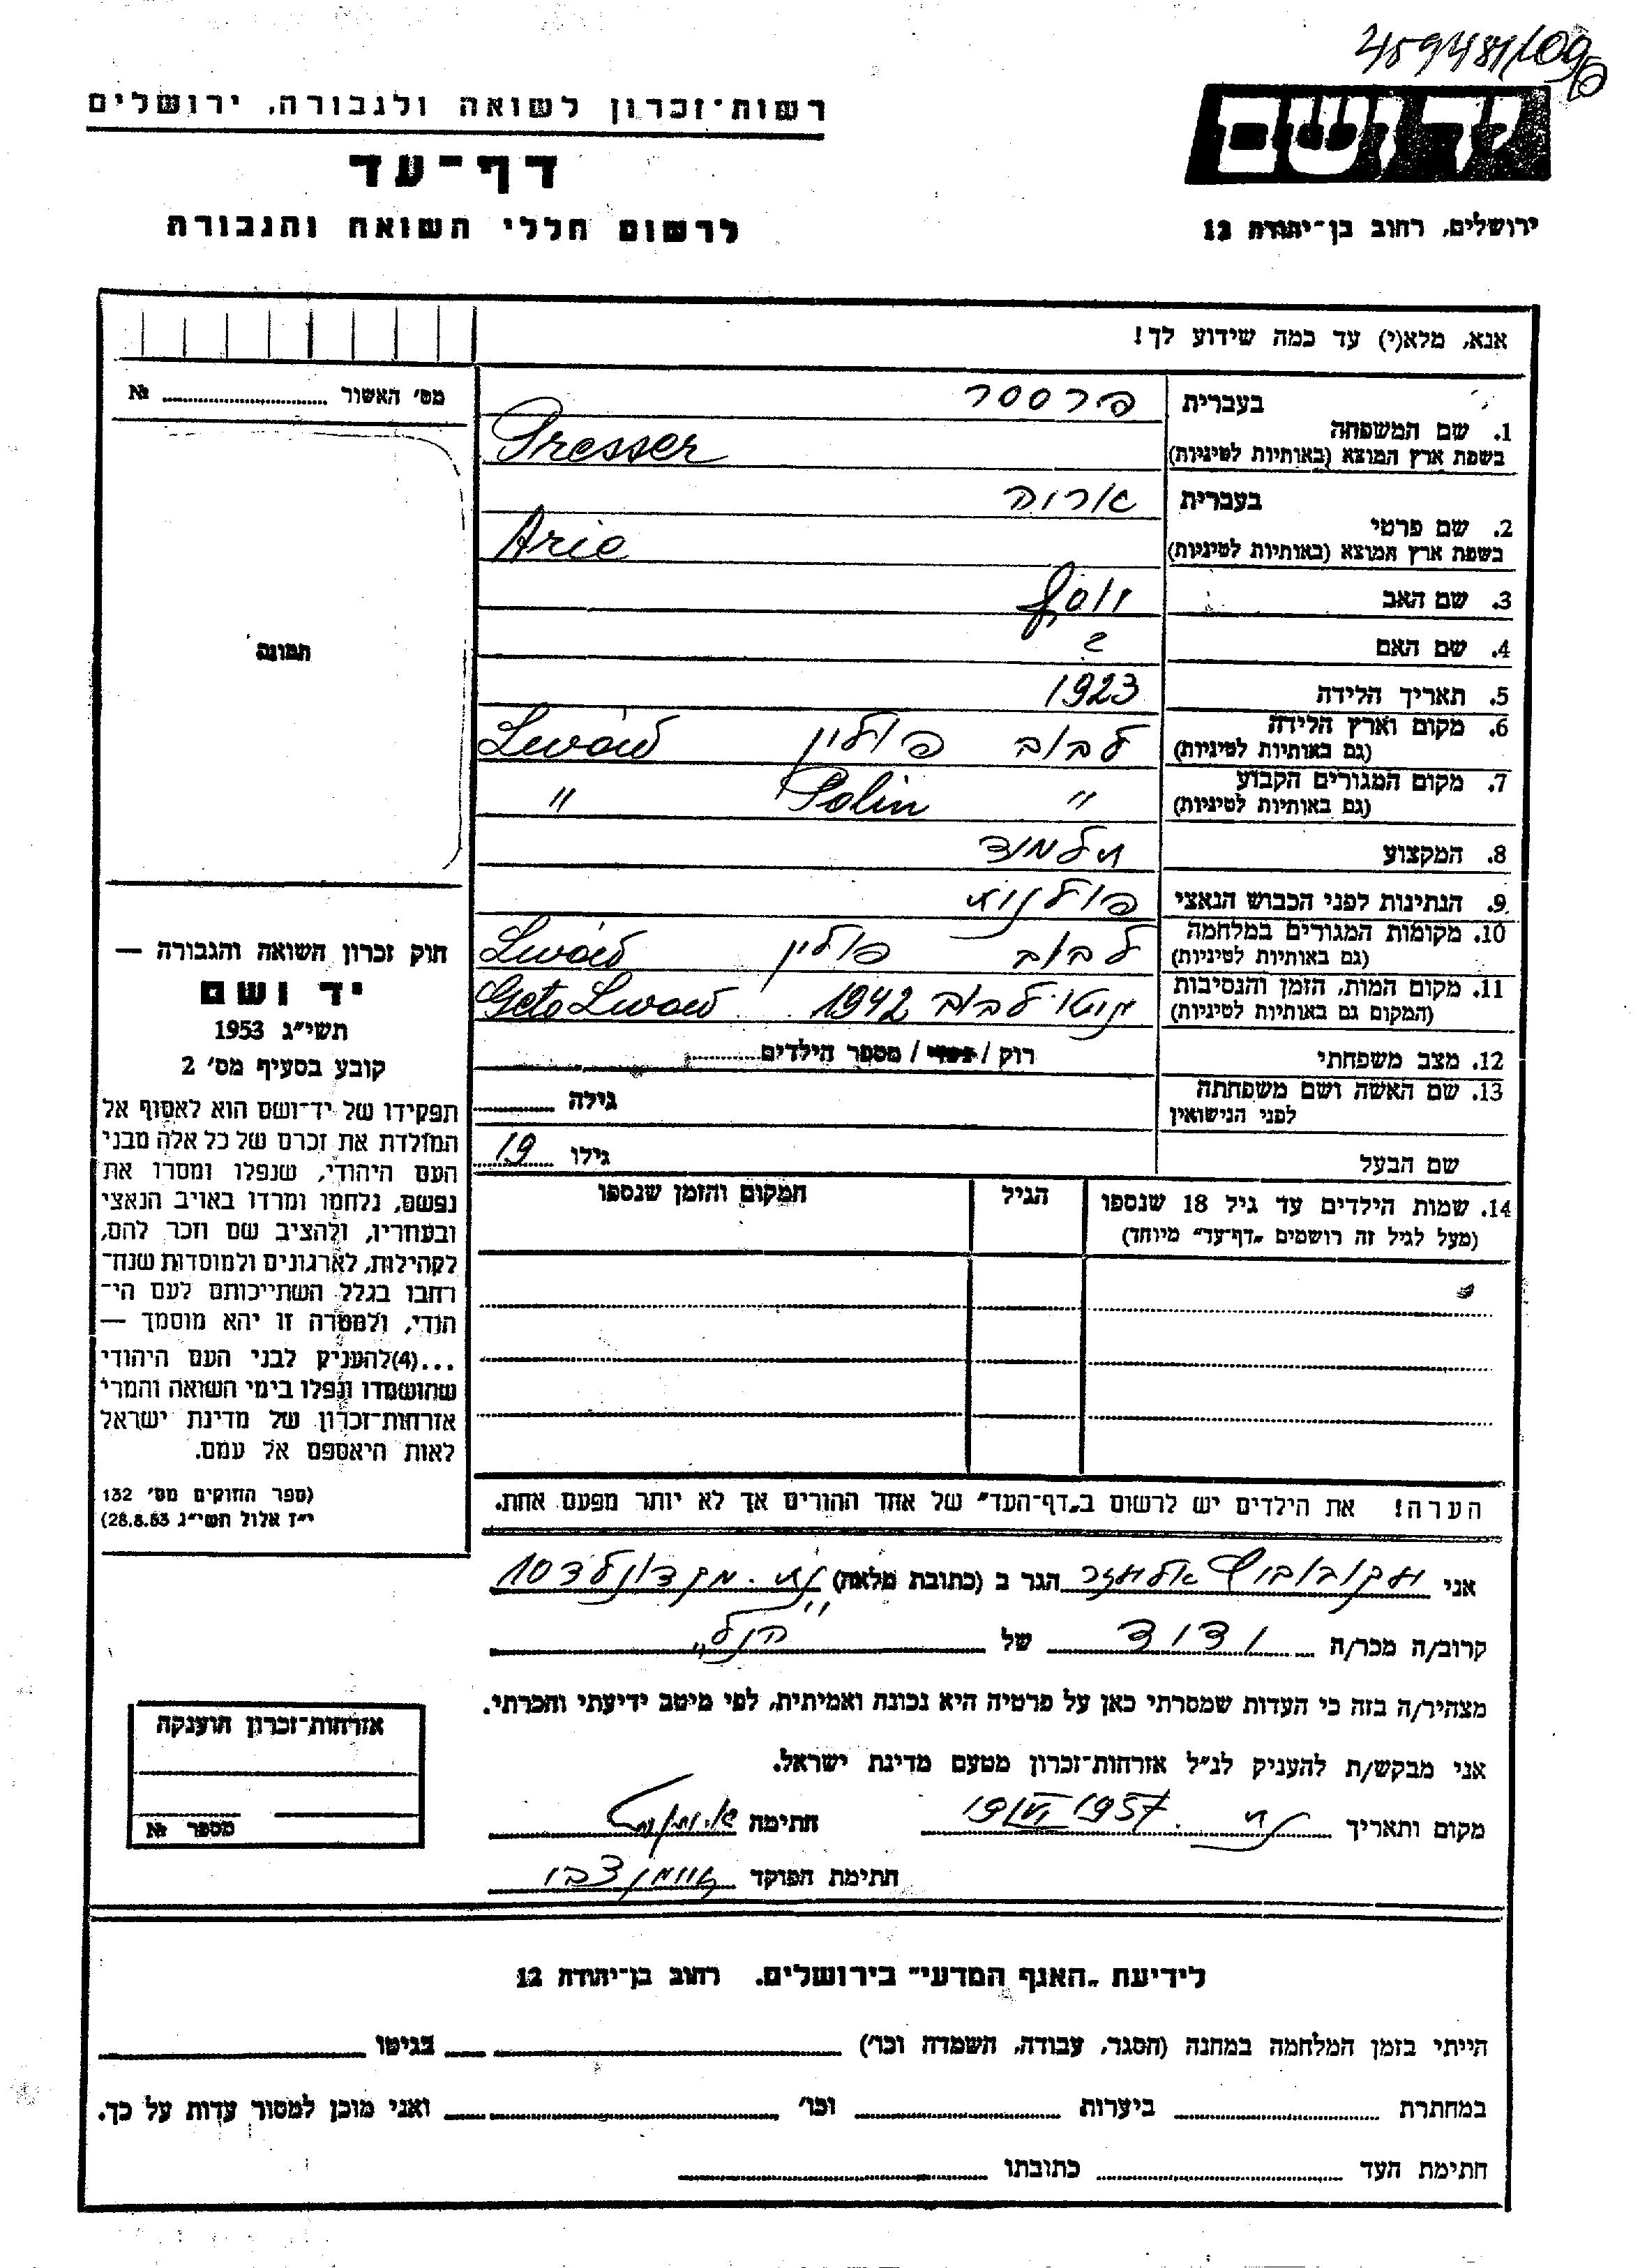 459481/09
יד ושם
רשות-זכרון לשואה ולגבורה, ירושלים
דף-עד
לרשום חללי השואה והגבורה
ירושלים, רחוב בן-יהודה 12
אנא, מלא(י) עד כמה שידוע לך!
מס׳ האשור ........ №
תמונה
1. שם המשפחה בעברית פרססר
בשפת ארץ המוצא (באותיות לטיניות) Presser
2. שם פרטי בעברית אריה
בשפת ארץ המוצא (באותיות לטיניות) Arie
3. שם האב יוסף
4. שם האם ?
5. תאריך הלידה 1923
6. מקום וארץ הלידה לבוב פולין Lwów
(גם באותיות לטיניות)
7. מקום המגורים הקבוע " Polin "
(גם באותיות לטיניות)
8. המקצוע תלמיד
9. הנתינות לפני הכבוש הנאצי פולנית
10. מקומות המגורים במלחמה לבוב פולין Lwów
(גם באותיות לטיניות)
11. מקום המות, הזמן והנסיבות גיטו לבוב 1942 Geto Lwow
(המקום גם באותיות לטיניות)
12. מצב משפחתי רוק / נשוי / מספר הילדים
13. שם האשה ושם משפחתה גילה
לפני הנישואין
שם הבעל גילו 19
14. שמות הילדים עד גיל 18 שנספו הגיל המקום והזמן שנספו
(מעל לגיל זה רושמים "דף-עד" מיוחד)
הערה! את הילדים יש לרשום ב"דף-העד" של אחד ההורים אך לא יותר מפעם אחת.
חוק זכרון השואה והגבורה —
יד ושם
תשי"ג 1953
קובע בסעיף מס׳ 2
תפקידו של יד-ושם הוא לאסוף אל
המולדת את זכרם של כל אלה מבני
העם היהודי, שנפלו ומסרו את
נפשם, נלחמו ומרדו באויב הנאצי
ובעוזריו, ולהציב שם וזכר להם,
לקהילות, לארגונים ולמוסדות שנח-
רבו בגלל השתייכותם לעם הי-
הודי, ולמטרה זו יהא מוסמך —
...(4)להעניק לבני העם היהודי
שהושמדו ונפלו בימי השואה והמרי
אזרחות-זכרון של מדינת ישראל
לאות היאספם אל עמם.
(ספר החוקים מס׳ 132
י"ז אלול תשי"ג 28.8.53)
אני יעקובוביץ אליעזר הגר ב (כתובת מלאה) ת. מקדונלד 10
קרוב/ה מכר/ה ידיד של הנ"ל
מצהיר/ה בזה כי העדות שמסרתי כאן על פרטיה היא נכונה ואמיתית, לפי מיטב ידיעתי והכרתי.
אני מבקש/ת להעניק לנ"ל אזרחות-זכרון מטעם מדינת ישראל.
מקום ותאריך 19/VI 1957 חתימה
חתימת הפוקד
אזרחות-זכרון הוענקה
מספר №
לידיעת "האגף המדעי" בירושלים. רחוב בן-יהודה 12
הייתי בזמן המלחמה במחנה (הסגר, עבודה, השמדה וכו׳) בגיטו
במחתרת ביערות וכו׳ ואני מוכן למסור עדות על כך.
חתימת העד כתובתו